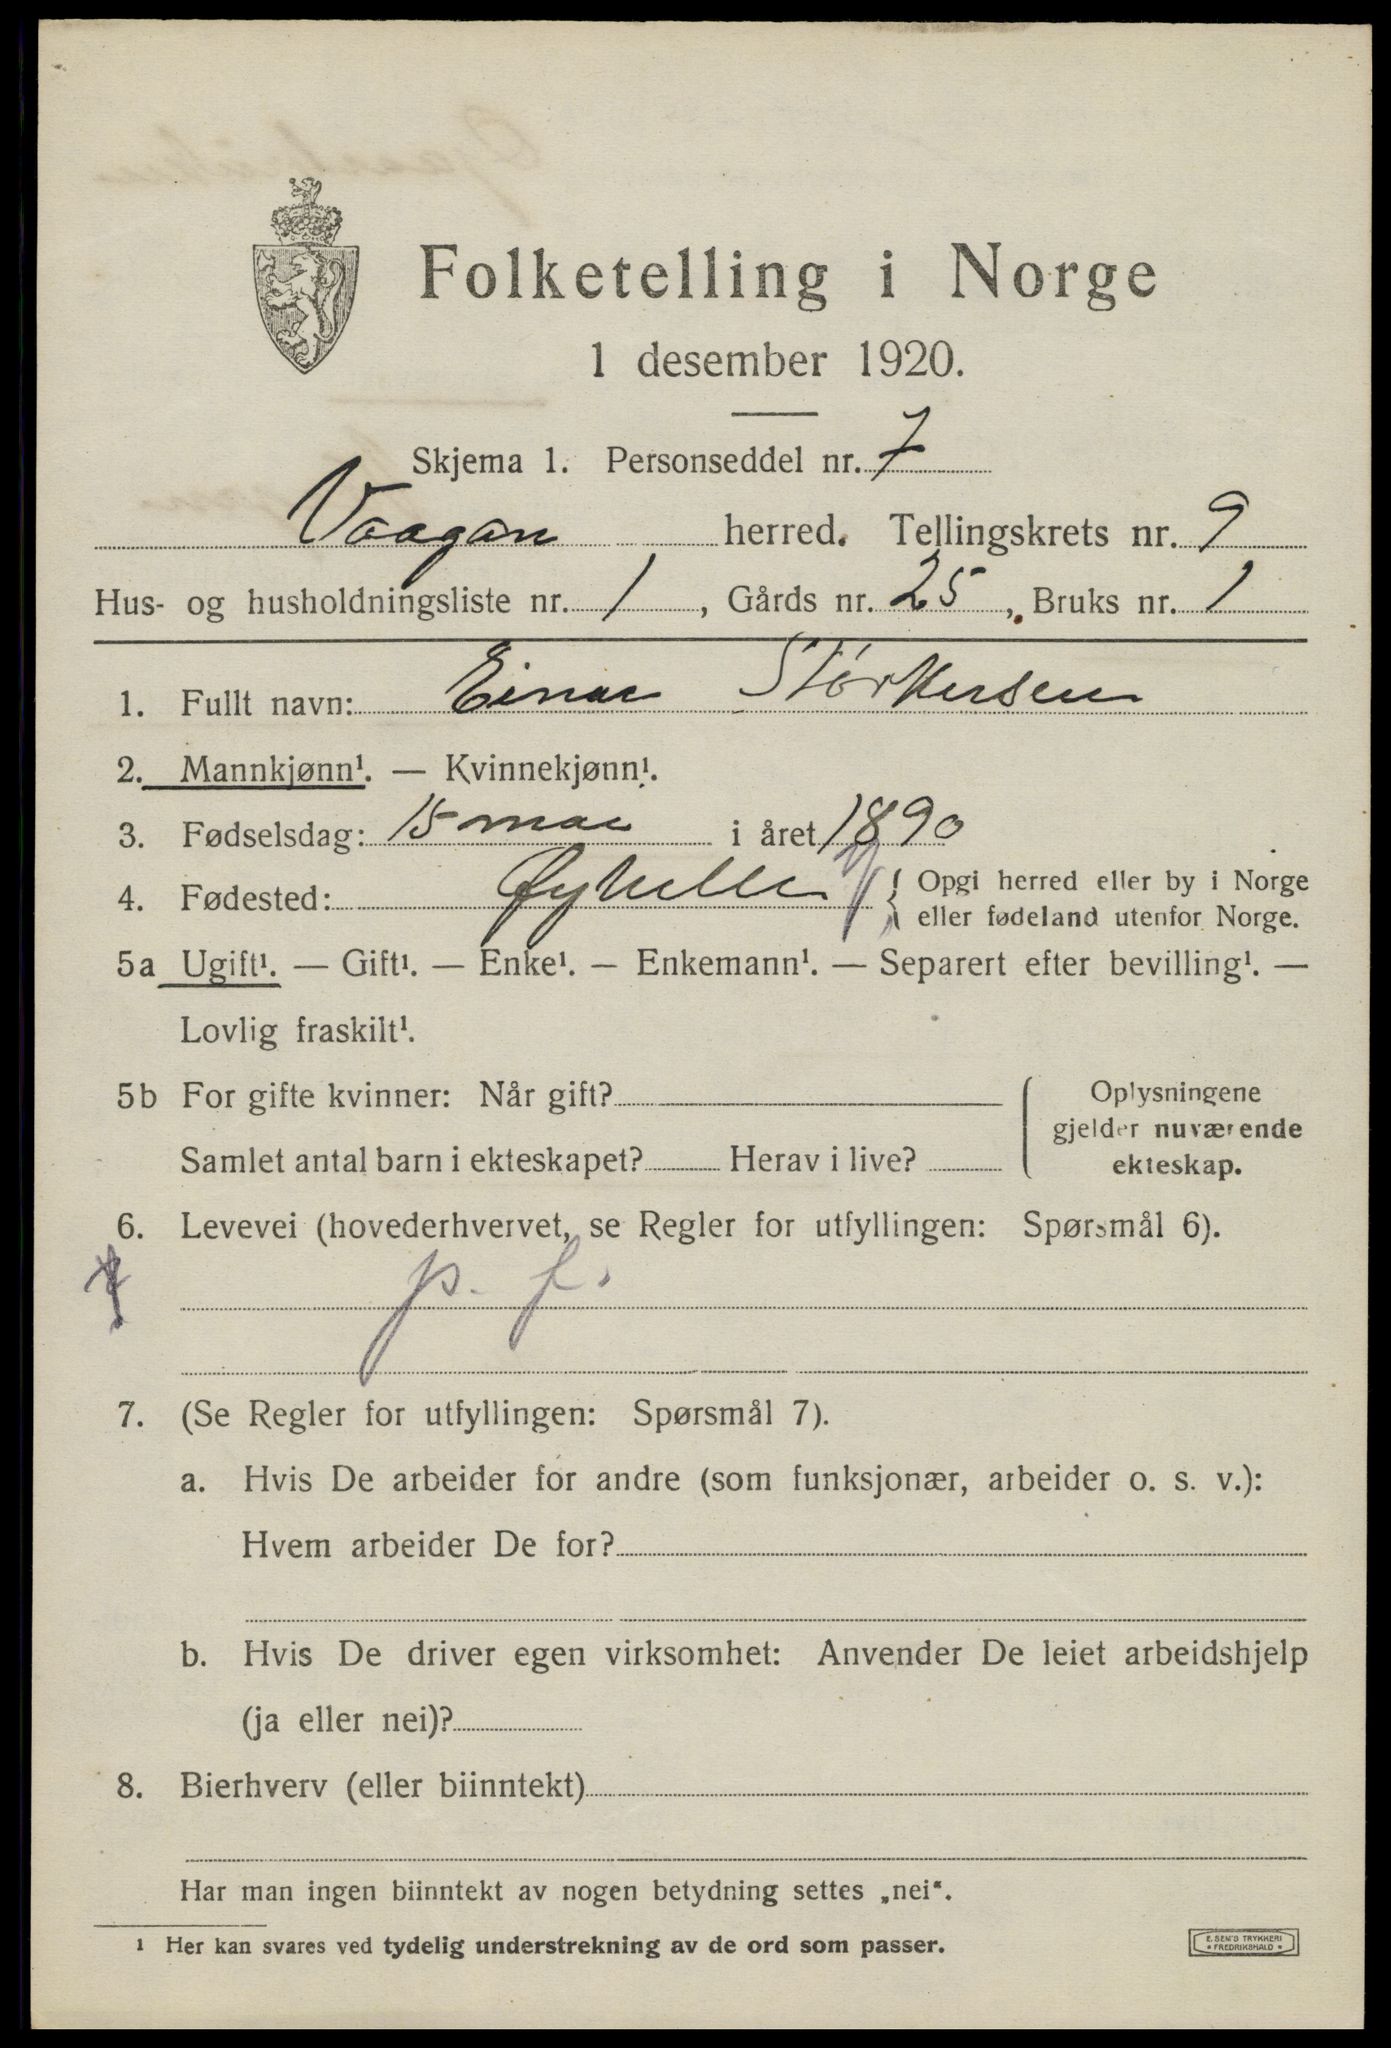 Folketelling i Norge
1 desember 1920.
Skjema 1. Personseddel nr. 7
Vaagan herred. Tellingskrets nr. 9
Hus- og husholdningsliste nr. 1, Gårds nr. 25, Bruks nr. 1
1. Fullt navn: Einar Størkersen
2. Mannkjønn¹. — Kvinnekjønn¹.
3. Fødselsdag: 15 mai i året 1890
4. Fødested: Øyhelle { Opgi herred eller by i Norge
eller fødeland utenfor Norge.
5a Ugift¹. — Gift¹. — Enke¹. — Enkemann¹. — Separert efter bevilling¹. —
Lovlig fraskilt¹.
5b For gifte kvinner: Når gift?
Samlet antal barn i ekteskapet? Herav i live?
Oplysningene
gjelder nuværende
ekteskap.
6. Levevei (hovederhvervet, se Regler for utfyllingen: Spørsmål 6).
p. f.
7. (Se Regler for utfyllingen: Spørsmål 7).
a. Hvis De arbeider for andre (som funksjonær, arbeider o. s. v.):
Hvem arbeider De for?
b. Hvis De driver egen virksomhet: Anvender De leiet arbeidshjelp
(ja eller nei)?
8. Bierhverv (eller biinntekt)
Har man ingen biinntekt av nogen betydning settes „nei“.
1 Her kan svares ved tydelig understrekning av de ord som passer.
E. SEM'S TRYKKERI
* FREDRIKSHALD *